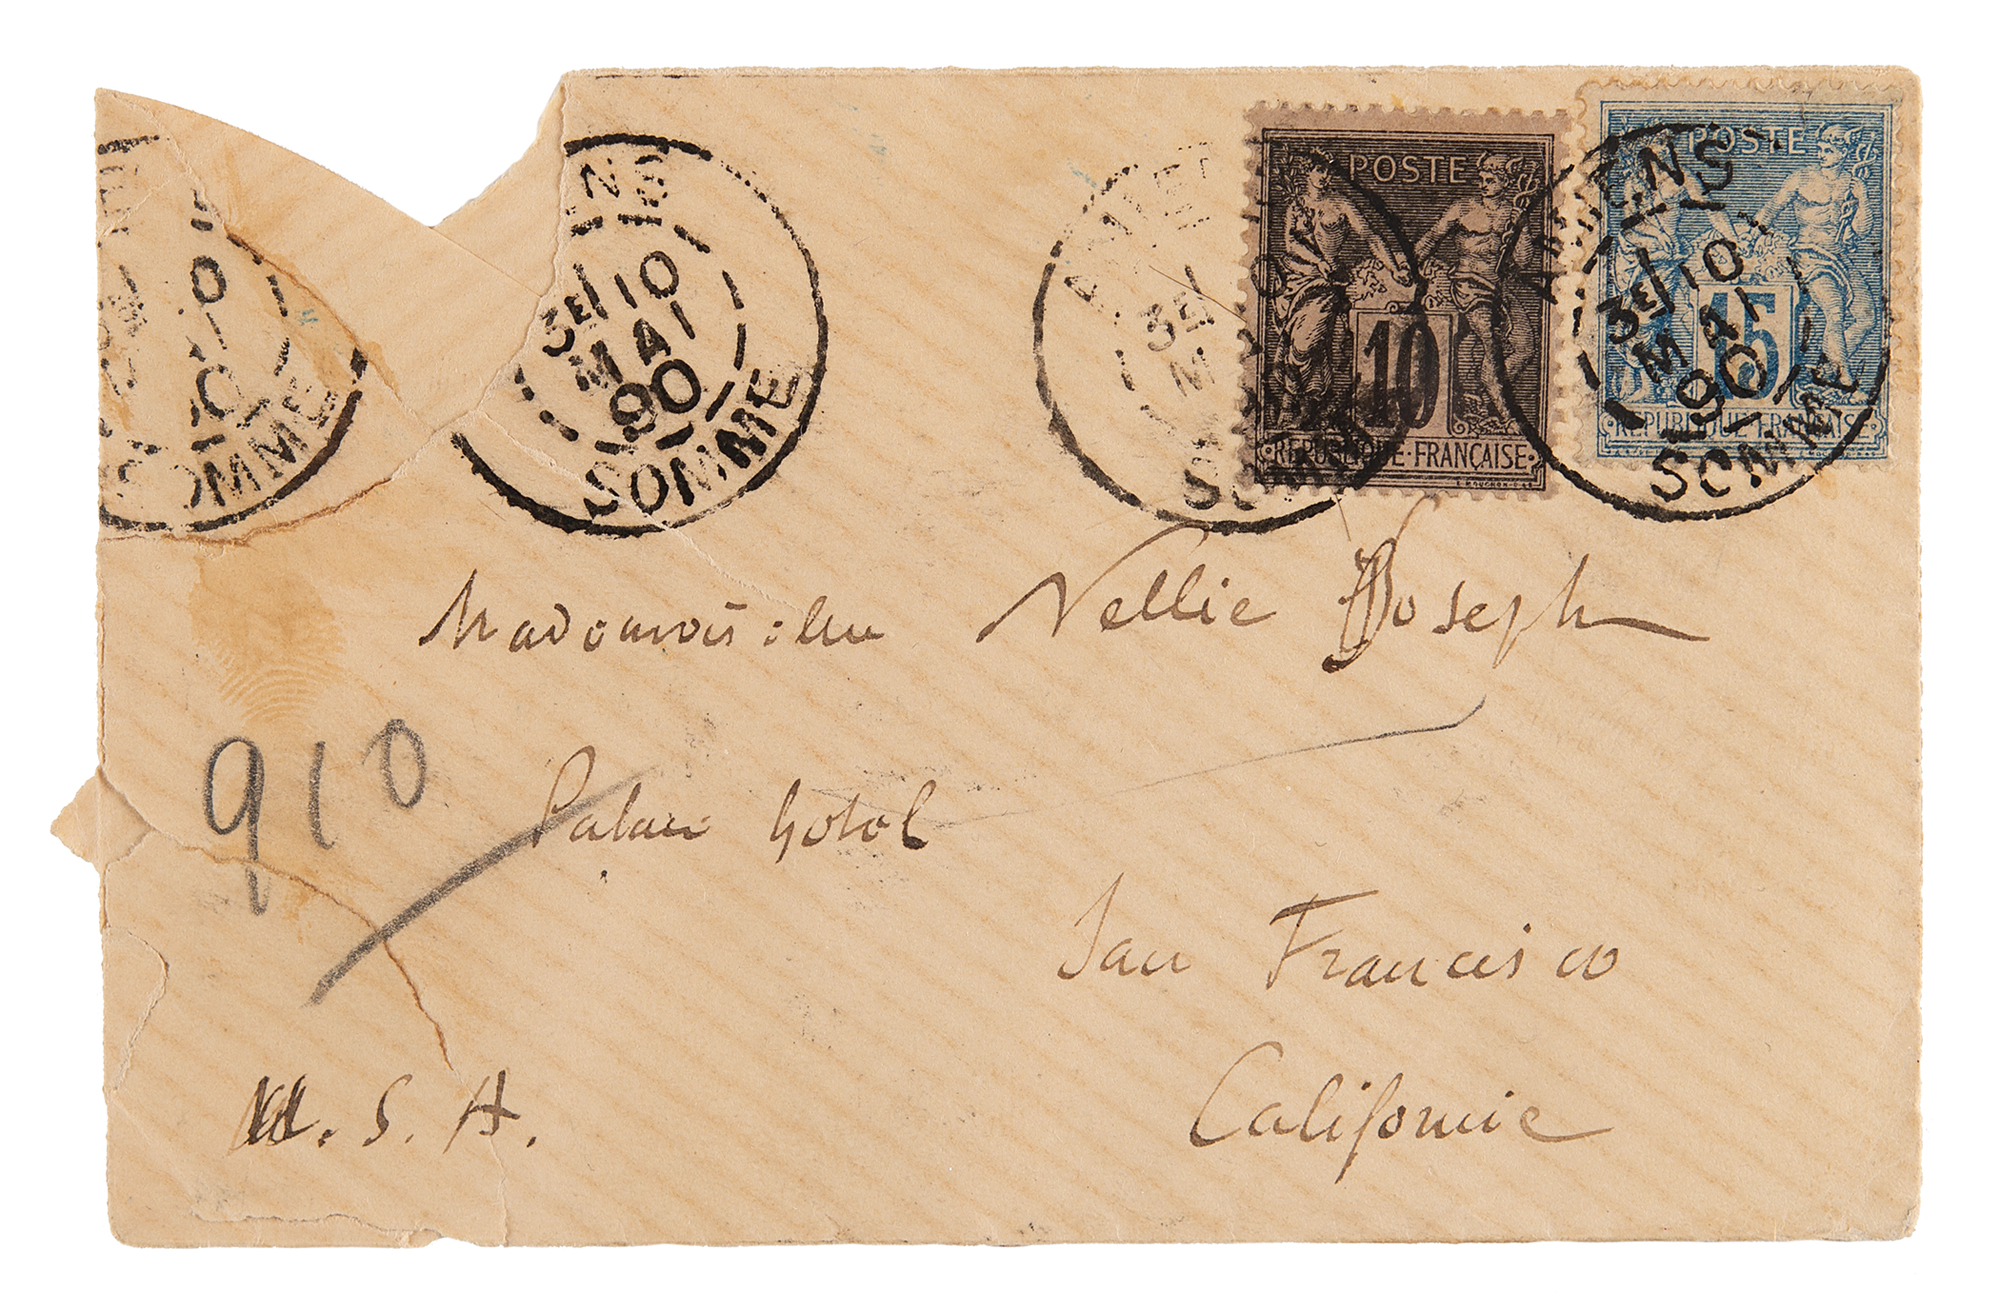 SOMME
3E/ 10
MAI
90
SOMME
3E/
POSTE
10
REPUBLIQUE FRANÇAISE
POSTE
15
REPUBLIQUE FRANÇAISE
AMIENS
3E/ 10
MAI
90
SOMME
Mademoiselle Nellie Joseph
910
Palace hotel
San Francisco
Californie
U.S.A.